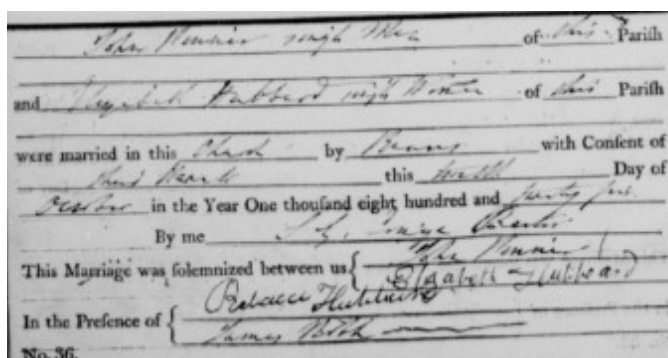 John single Man of this Parish
and Elizabeth Hubbard single Woman of this Parish
were married in this Church by Banns with Consent of
their Parents this twelfth Day of
October in the Year One thousand eight hundred and
By me
This Marriage was solemnized between us { John
Elizabeth Hubbard
In the Presence of { Rebecca Hubbard
James
No. 36.